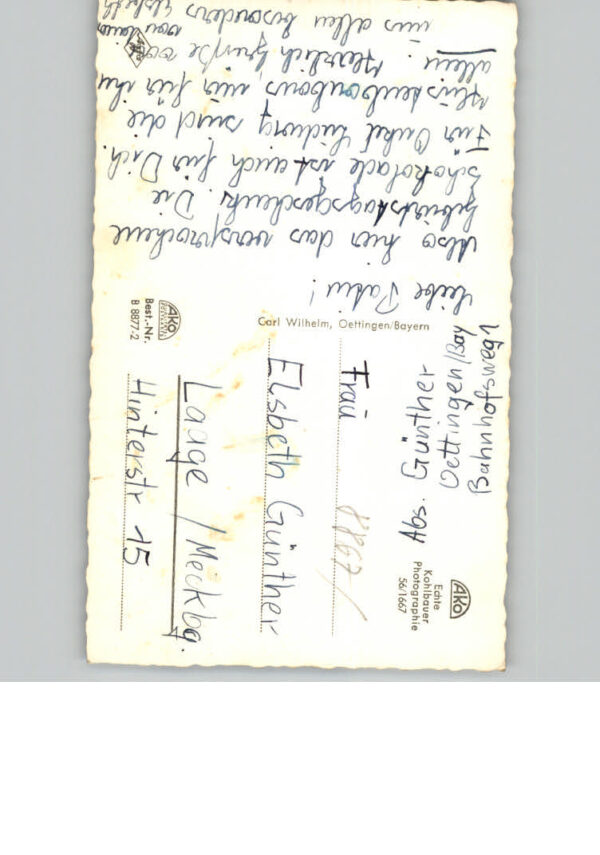 Liebe Patin!
Also hier das versprochene
Geburtstagsgeschenk. Die
Schokolade ist auch für Dich.
Für Onkel Ludwig sind die
Hustenbonbons nur für ihn
allein! Herzlich Grüße von
uns allen besonders
Carl Wilhelm, Oettingen/Bayern
AKO
Best.-Nr.
B 8877-2
AKO
Echte
Kohlbauer
Photographie
56/1667
Abs. Günther
Oettingen/Bay
Bahnhofsweg 1
Frau
Elsbeth Günther
Laage / Meckbg.
Hinterstr 15